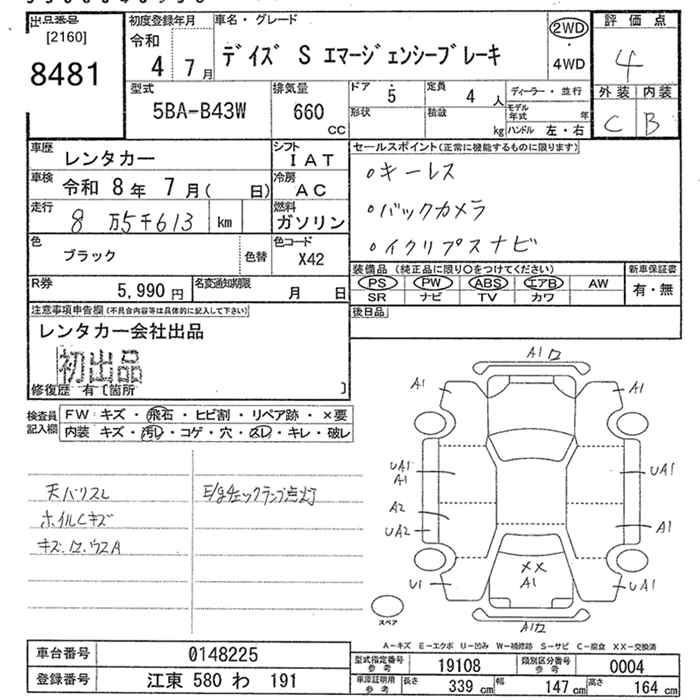 出品番号
[2160]
8481
初度登録年月
令和
4年 7月
車名・グレード
デイズ S エマージェンシーブレーキ
2WD
・
4WD
評価点
4
外装 内装
C B
型式
5BA-B43W
排気量
660
CC
ドア ・ 5
定員 4 人
ディーラー・並行
形状
積載 kg
モデル年式 年
ハンドル 左・右
車歴 レンタカー
シフト IAT
車検 令和 8年 7月( 日)
冷房 AC
走行 8万5千613 km
燃料 ガソリン
色 ブラック 色替
色コード X42
R券 5,990円
名変通知期限 月 日
セールスポイント(正常に機能するものに限ります)
○キーレス
○バックカメラ
○イクリプスナビ
装備品 (純正品に限り○をつけてください)
PS PW ABS エアB AW
SR ナビ TV カワ
新車保証書
有・無
後日品
注意事項申告欄(不具合内容等は具体的に記入して下さい)
レンタカー会社出品
初出品
修復歴 有〔箇所 〕
検査員記入欄
FW キズ・飛石・ヒビ割・リペア跡・×要
内装 キズ・汚レ・コゲ・穴・スレ・キレ・破レ
天バリスレ
ホイルCキズ
キズ.ワ.ウスA
E/gチェックランプ点灯
A1ワ
A1
A1
UA1
A1
UA1
A2
UA2
A1
U1
XX
A1
UA1
A1ワ
スペア
A-キズ E-エクボ U-凹み W-補修跡 S-サビ C-腐食 XX-交換済
車台番号 0148225
登録番号 江東 580 わ 191
型式指定番号 参考 19108
類別区分番号 参考 0004
車庫証明用 参考
長さ 339 cm 幅 147 cm 高さ 164 cm